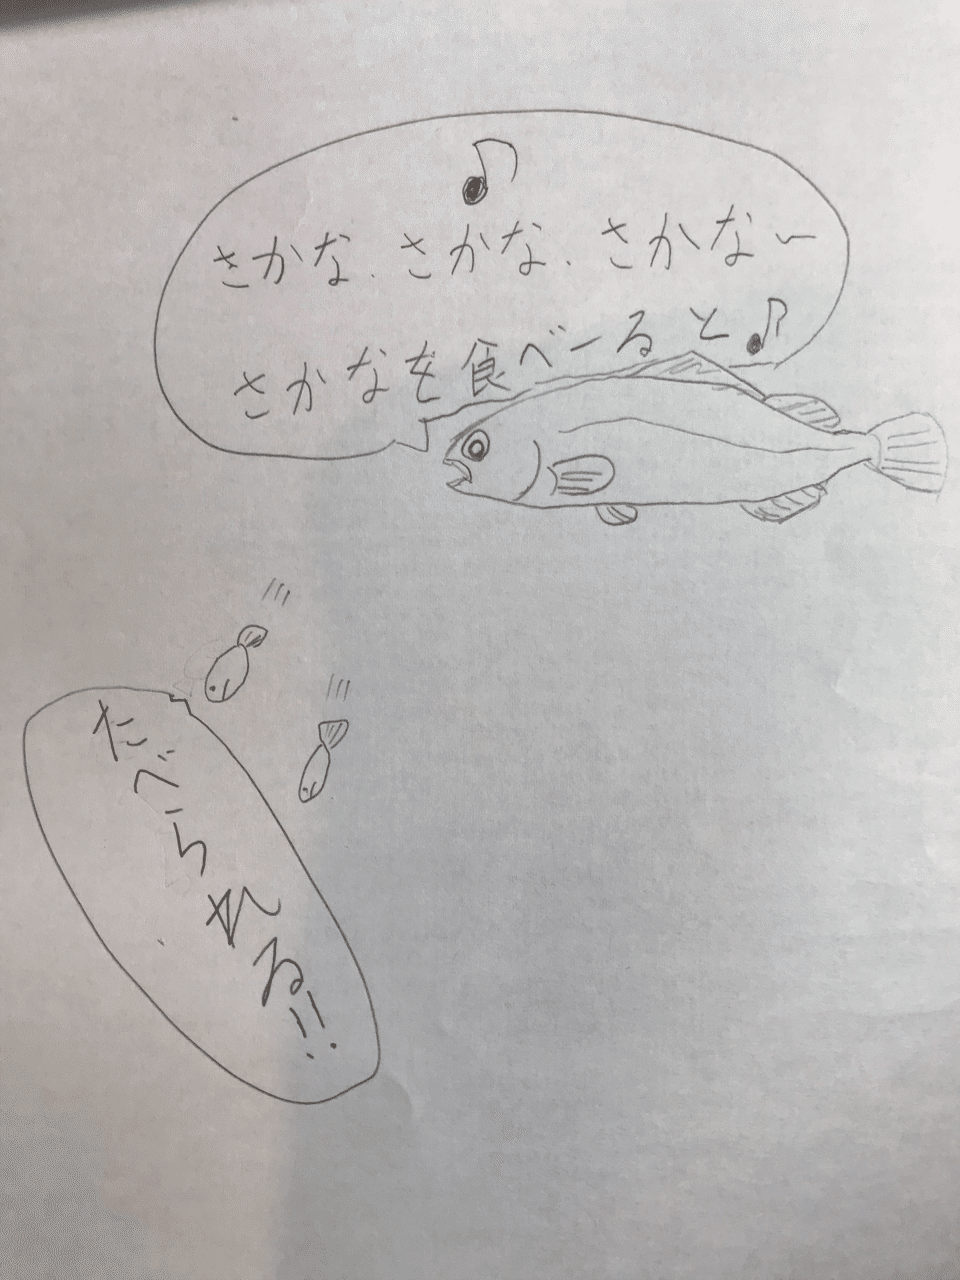 ♪
さかな、さかな、さかな〜
さかなを食べーると♪
たべられる!!